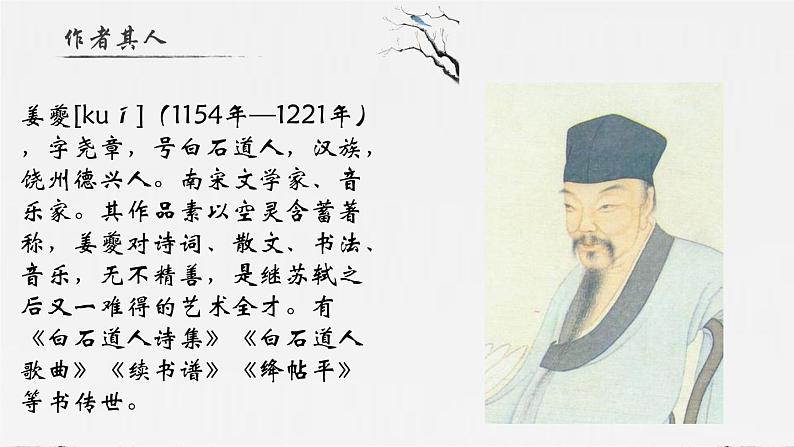 作者其人
姜夔[kuí]（1154年—1221年）
，字尧章，号白石道人，汉族，
饶州德兴人。南宋文学家、音
乐家。其作品素以空灵含蓄著
称，姜夔对诗词、散文、书法、
音乐，无不精善，是继苏轼之
后又一难得的艺术全才。有
《白石道人诗集》《白石道人
歌曲》《续书谱》《绛帖平》
等书传世。